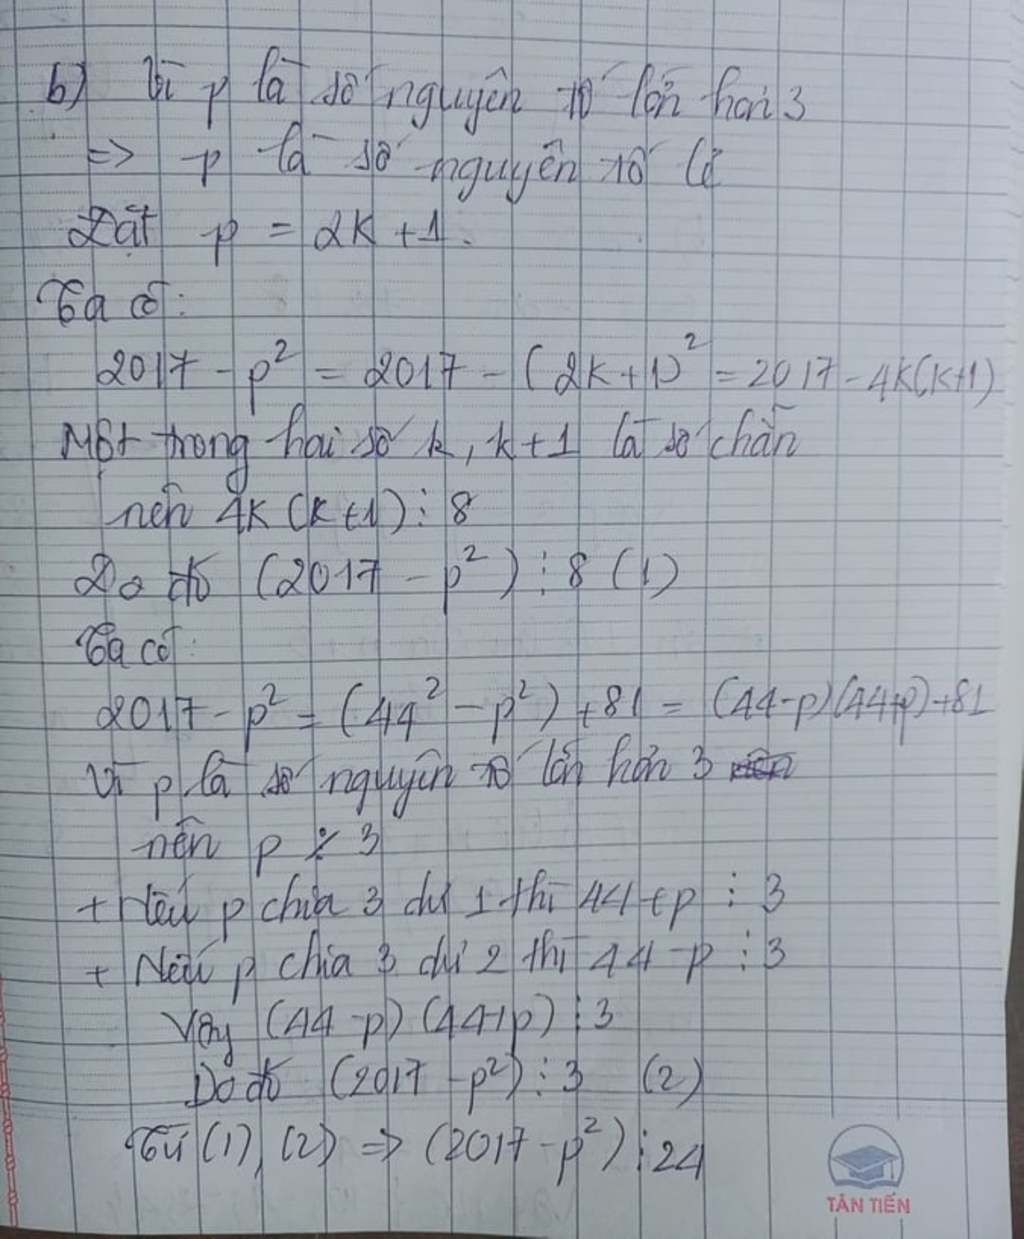 b) Vì p là số nguyên tố lớn hơn 3
=> p là số nguyên tố lẻ
Đặt p = 2k + 1.
Ta có:
2017 - p² = 2017 - (2k+1)² = 2017 - 4k(k+1)
Một trong hai số k, k+1 là số chẵn
nên 4k(k+1) ⋮ 8
Do đó (2017 - p²) ⋮ 8 (1)
Ta có:
2017 - p² = (44² - p²) + 81 = (44-p)(44+p)+81
Vì p là số nguyên tố lớn hơn 3
nên p ⋮̸ 3
+ Nếu p chia 3 dư 1 thì 44+p ⋮ 3
+ Nếu p chia 3 dư 2 thì 44-p ⋮ 3
Vậy (44-p)(44+p) ⋮ 3
Do đó (2017 - p²) ⋮ 3 (2)
Từ (1), (2) => (2017 - p²) ⋮ 24
TÂN TIẾN